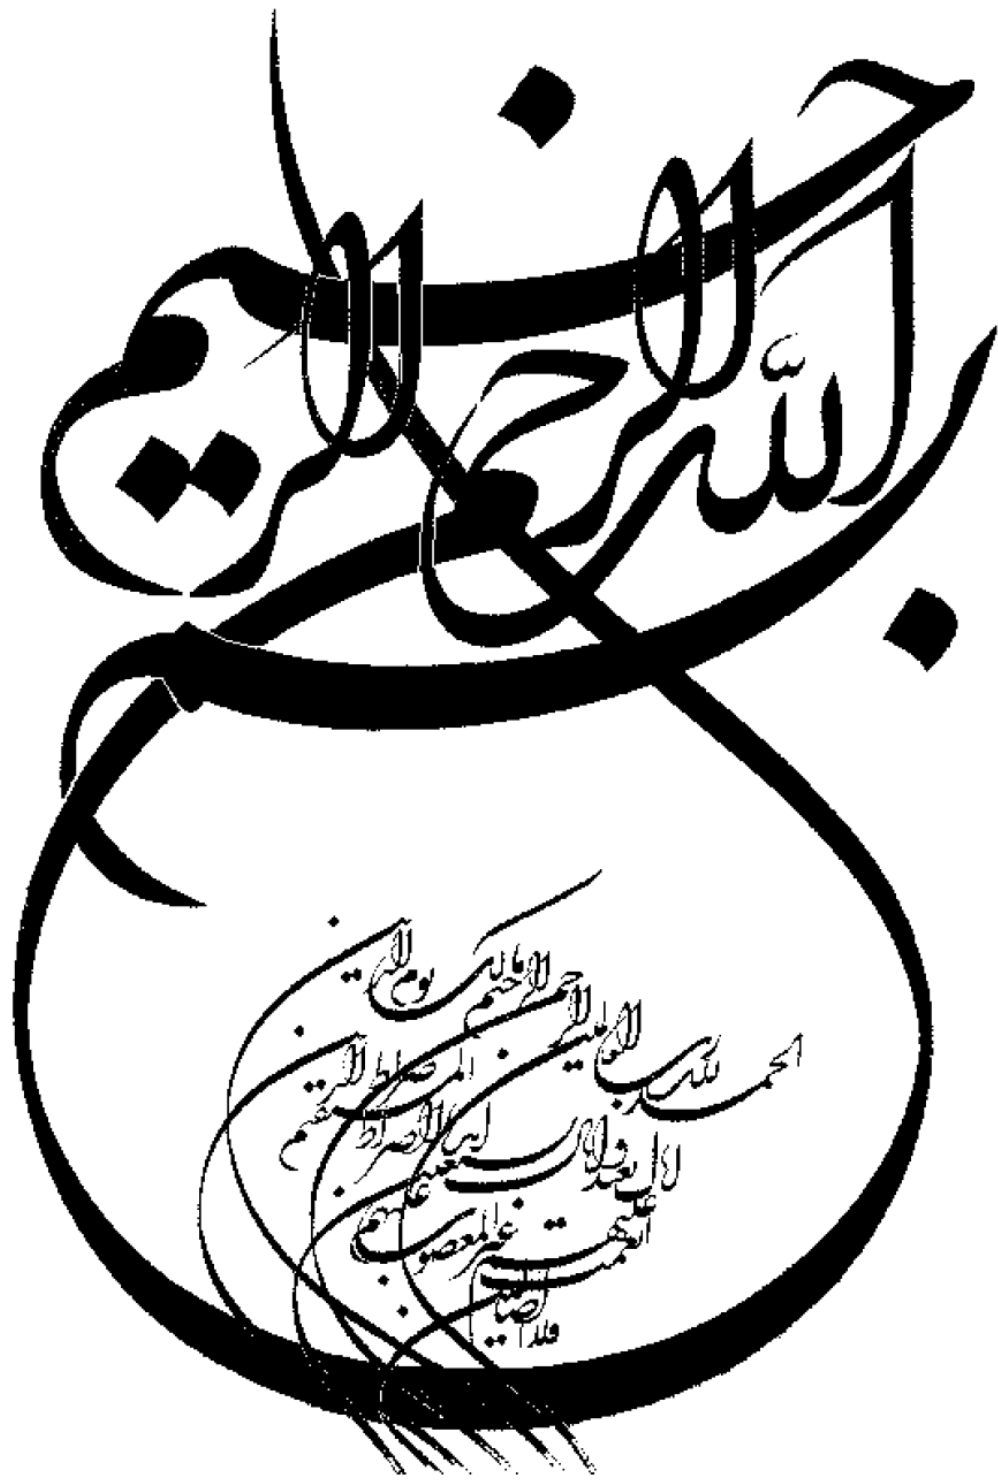 بسم الله الرحمن الرحيم
الحمد لله رب العالمين
الرحمن الرحيم مالك يوم الدين
إياك نعبد وإياك نستعين
اهدنا الصراط المستقيم
صراط الذين
أنعمت عليهم
غير المغضوب عليهم
ولا الضالين